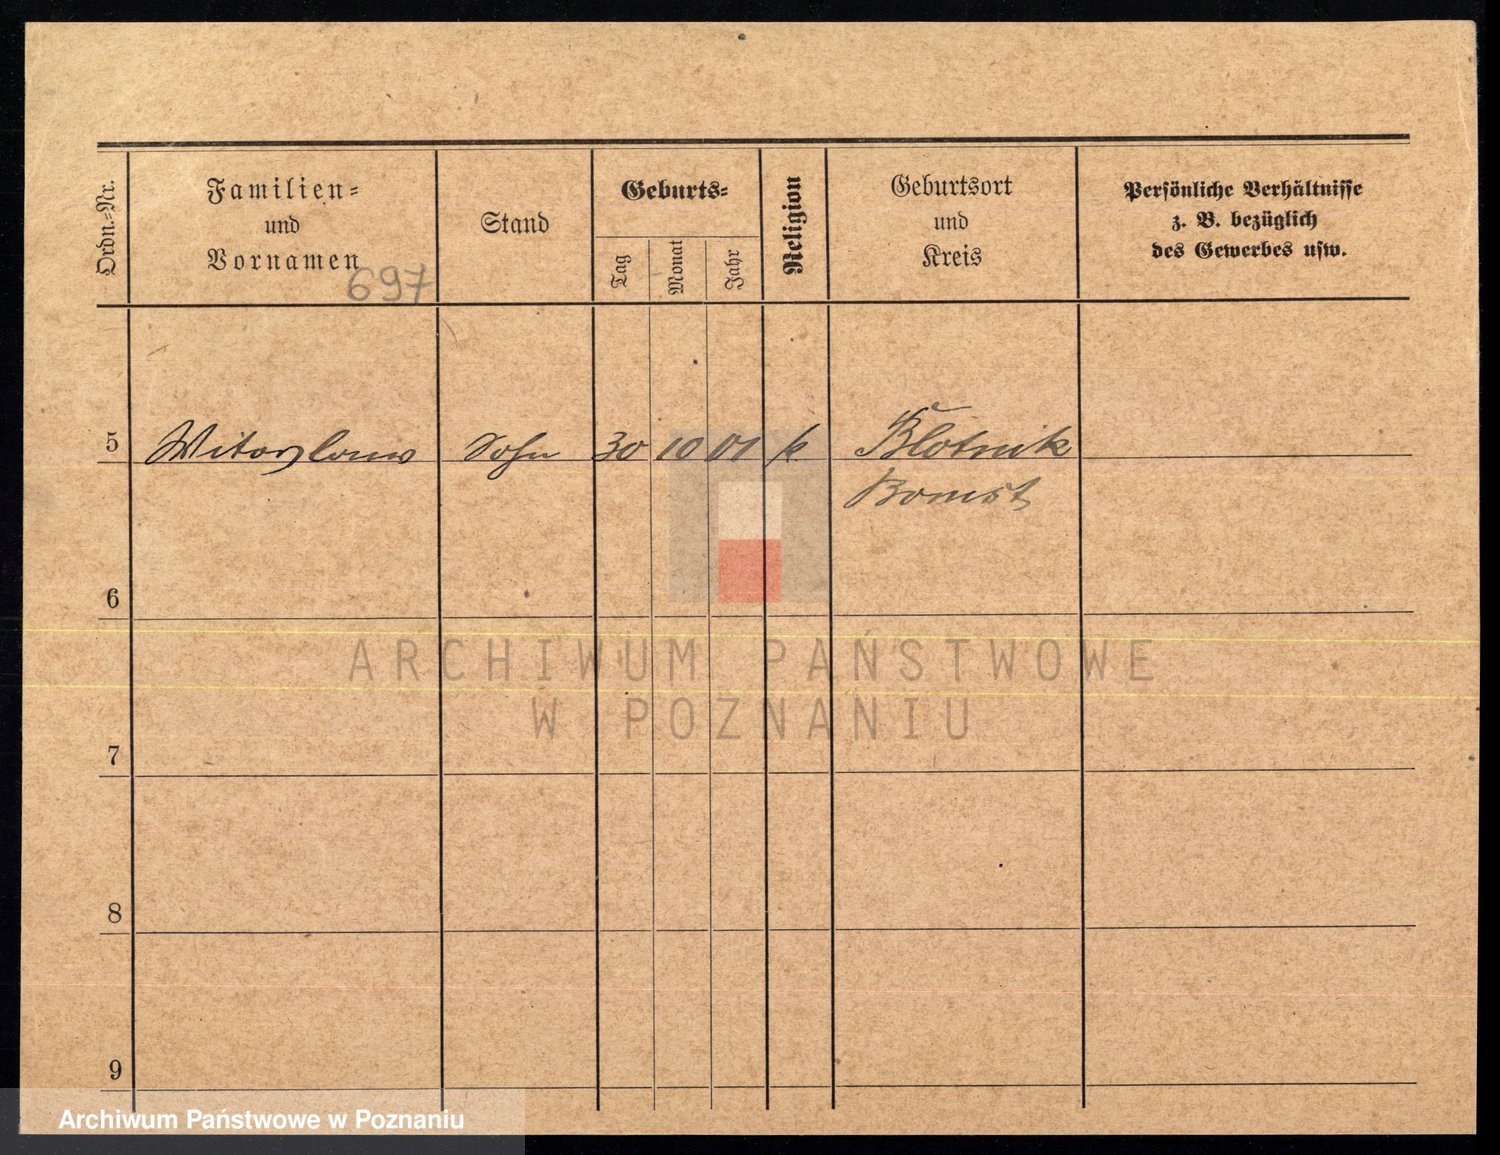 Ordn.-Nr.
Familien-
und
Vornamen
697
Stand
Geburts-
Tag
Monat
Jahr
Religion
Geburtsort
und
Kreis
Persönliche Verhältnisse
z. B. bezüglich
des Gewerbes usw.
5 Sohn 30 10 01 k Blotnik
Bomst
6
ARCHIWUM PAŃSTWOWE
W POZNANIU
7
8
9
Archiwum Państwowe w Poznaniu